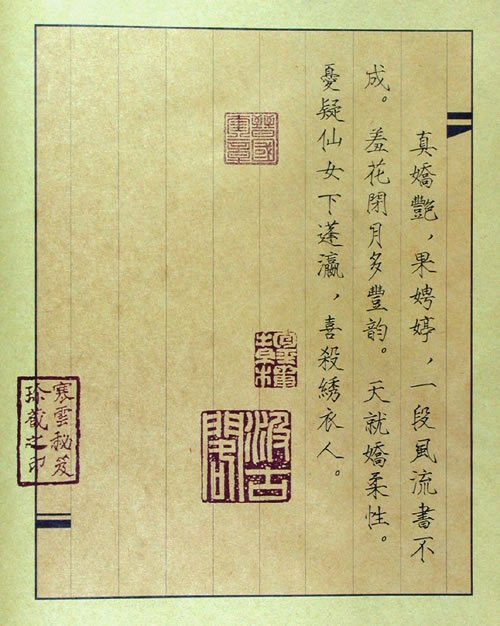 真嬌艷，果娉婷，一段風流書不
成。羞花閉月多豐韵。天就嬌柔性。
憂疑仙女下蓬瀛，喜殺綉衣人。
汲古
閣
寒雲秘笈
珍藏之印